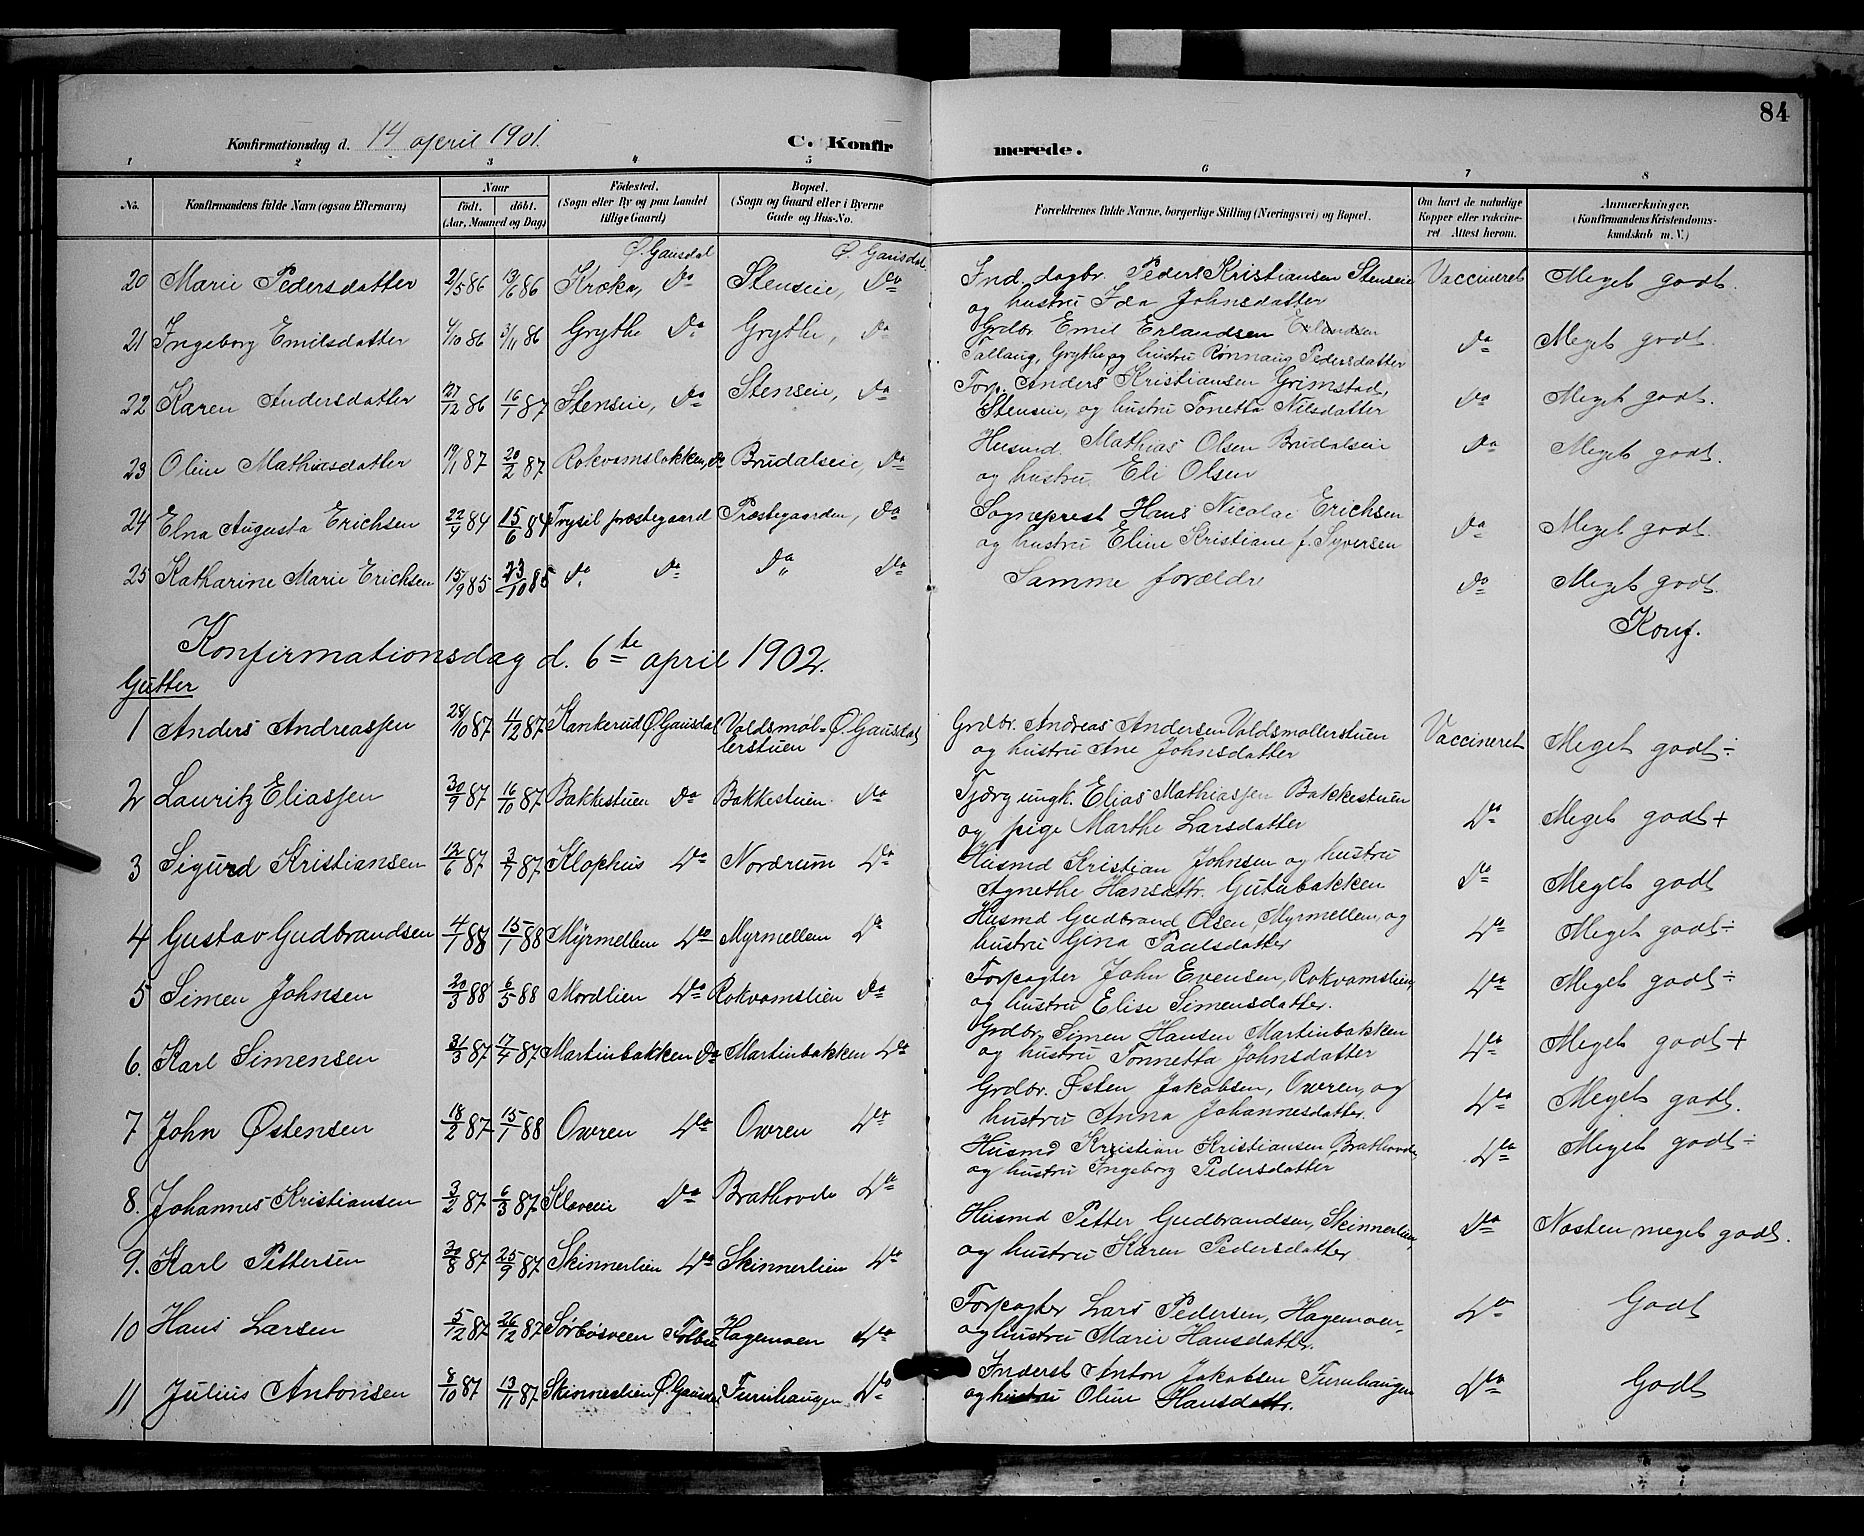 84
Konfirmationsdag d. 14 april 1901.
C. Konfirmerede.
1 2 3 4 5 6 7 8
No.
Konfirmandens fulde Navn (ogsaa Efternavn)
Naar
födt. döbt.
(Aar, Maaned og Dag)
Födested.
(Sogn eller By og paa Landet
tillige Gaard)
Bopæl.
(Sogn og Gaard eller i Byerne
Gade og Hus-No.
Forældrenes fulde Navne, borgerlige Stilling (Næringsvei) og Bopæl.
Om havt de naturlige
Kopper eller vakcine-
ret Attest herom.
Anmærkninger.
(Konfirmandens Kristendoms-
kundskab m. V.)
Ø. Gausdal Ø. Gausdal.
20 Marie Pedersdatter 2/5 86 13/6 86 Kroka, Do Stenseie, Do Ind. dagbr. Peder Kristiansen Stenseie Vaccineret Meget godt.
og hustru Ida Johnsdatter
21 Ingeborg Emilsdatter 4/10 86 3/11 86 Grythe Do Grythe, Do Grdbr. Emil Erlandsen Erlandsen Do Meget godt.
Tallaug, Grythe, og hustru Rønnaug Pedersdatter
22 Karen Andersdatter 27/12 86 16/1 87 Stenseie, Do Stenseie, Do Forp. Anders Kristiansen Grimstad, Do Meget godt.
Stenseie, og hustru Tonetta Nilsdatter
23 Oline Mathiasdatter 19/1 87 20/2 87 Rokvamsløkken, Do Brudalseie, Do Husmd. Mathias Olsen Brudalseie Do Meget godt.
og hustru Eli Olsen
24 Elna Augusta Erichsen 22/4 84 15/6 84 Trysil præstegaard Præstegaarden, Do Sogneprest Hans Nicolai Erichsen Do Meget godt.
og hustru Eline Kristiane f. Syversen
25 Katharine Marie Erichsen 15/9 85 23/10 85 Do Do Do Do Samme forældre Do Meget godt.
Konf.
Konfirmationsdag d. 6te april 1902.
Gutter
1 Anders Andreassen 28/10 87 4/12 87 Kankerud Ø. Gausdal Valdsmøl- Ø. Gausdal Grdbr. Andreas Andersen Valdsmøllerstuen Vaccineret Meget godt ÷
lerstuen og hustru Ane Johnsdatter
2 Lauritz Eliassen 30/9 87 16/10 87 Bakkestuen Do Bakkestuen Do Tjærg ungk. Elias Mathiassen Bakkestuen Do Meget godt +
og pige Marthe Larsdatter
3 Sigurd Kristiansen 12/6 87 3/7 87 Klophus Do Nordrum Do Husmd Kristian Johnsen og hustru Do Meget godt
Agnethe Hansdttr. Gutubakken
4 Gustav Gudbrandsen 4/1 88 15/1 88 Myrmellem Do Myrmellem Do Husmd Gudbrand Olsen, Myrmellem, og Do Meget godt ÷
hustru Gina Paulsdatter
5 Simen Johnsen 20/3 88 6/5 88 Mordlien Do Rokvamslien Do Forpagter John Evensen, Rokvamslien, Do Meget godt ÷
og hustru Elise Simensdatter.
6. Karl Simensen 21/3 87 7/4 87 Martinbakken Do Martinbakken Do Grdbr, Simen Hansen Martinbakken Do Meget godt +
og hustru Tonnetta Johnsdatter
7 John Østensen 18/2 87 15/1 88 Owren Do Owren Do Grdbr. Østen Jakobsen, Owren, og Do Meget godt.
hustru Anna Johannesdatter.
8. Johannes Kristiansen 3/2 87 6/3 87 Kloveie Do Brathovde Do Husmd Kristian Kristiansen, Brathovde, Do Meget godt ÷
og hustru Ingeborg Pedersdatter
9. Karl Pettersen 30/8 87 25/9 87 Skinnerlien Do Skinnerlien Do Husmd Petter Gudbrandsen, Skinnerlien, Do Næsten meget godt.
og hustru Karen Pedersdatter.
10 Hans Larsen 5/12 87 26/12 87 Sørbøsveen Follebu Hagemoen Do Forpagter Lars Pedersen, Hagemoen, Do Godt
og hustru Marie Hansdatter.
11 Julius Antonsen 8/10 87 13/11 87 Skinnerlien Ø. Gausdal Furuhaugen Do Inderst Anton Jakobsen Furuhaugen Do Godt
og hustru Oline Hansdattr.